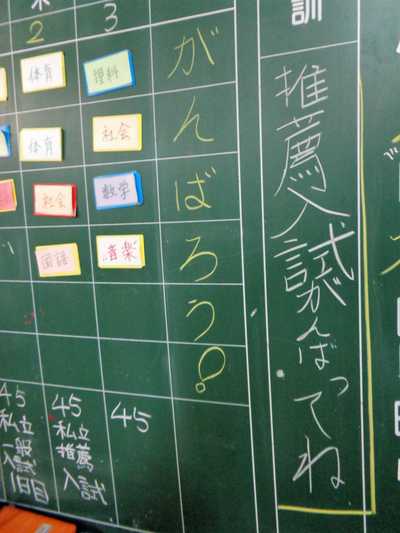 訓
推薦入試がんばってね
がんばろう!
3
理科
社会
数学
音楽
45
2
体育
体育
社会
国語
45
私立
推薦
入試
45
私立
一般
入試
1日目